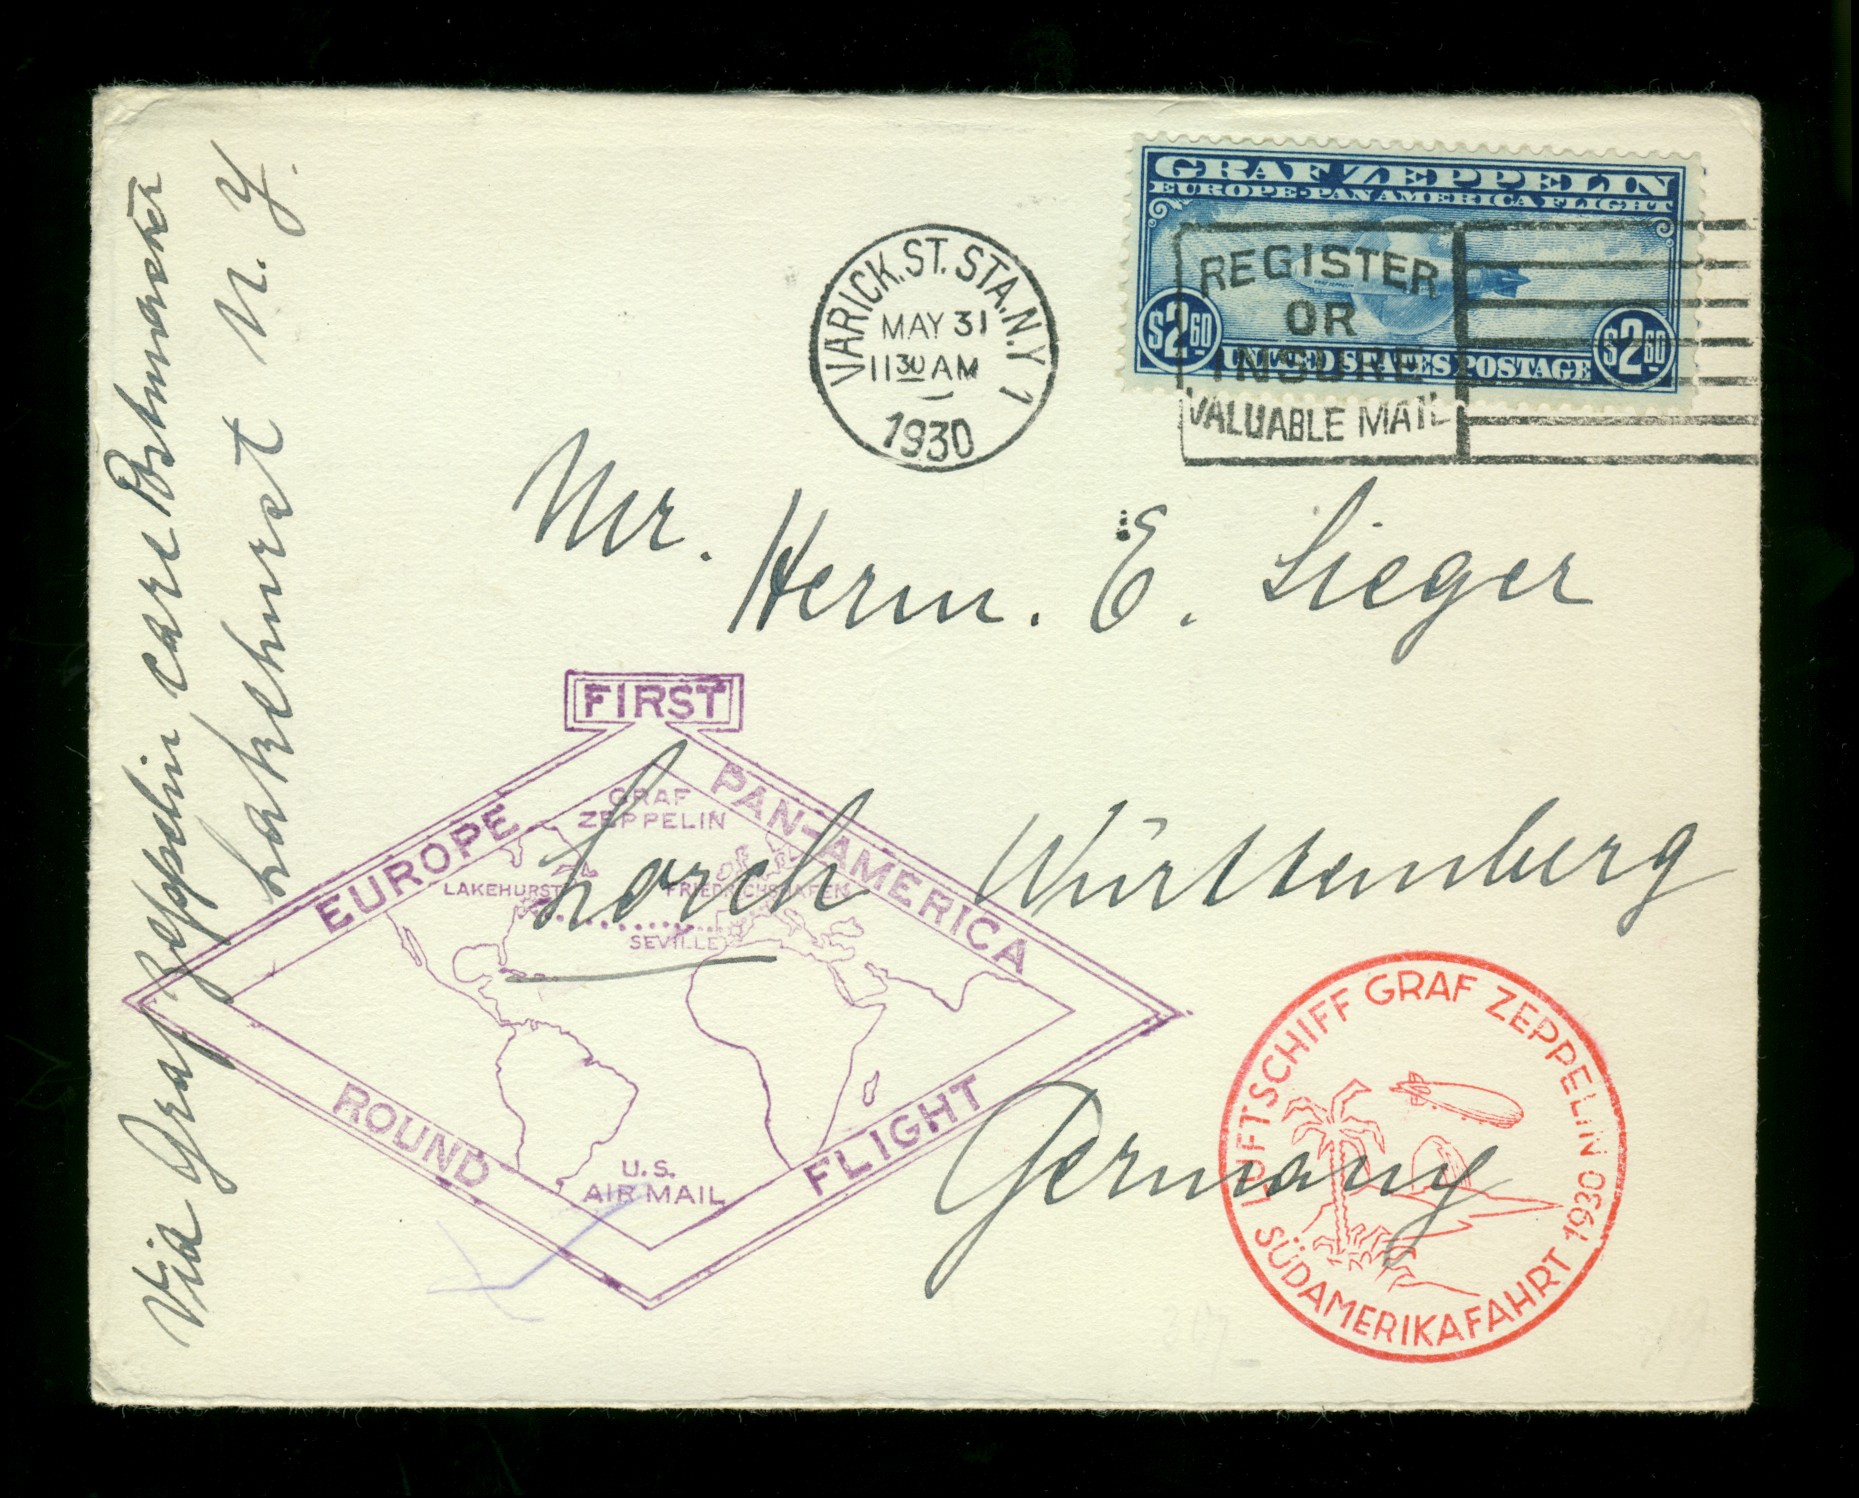 Via Graf Zeppelin care Postmaster
Lakehurst N. Y.
GRAF ZEPPELIN
EUROPE-PAN AMERICA FLIGHT
$2.60
$2.60
UNITED STATES POSTAGE
VARICK. ST. STA. N.Y. 1
MAY 31
11 30 AM
1930
REGISTER
OR
INSURE
VALUABLE MAIL
Mr. Herm. E. Sieger
Lorch Württemberg
Germany
FIRST
EUROPE
PAN-AMERICA
ROUND
FLIGHT
GRAF
ZEPPELIN
LAKEHURST
FRIEDRICHSHAFEN
SEVILLE
U.S.
AIR MAIL
LUFTSCHIFF GRAF ZEPPELIN 1930
SÜDAMERIKAFAHRT